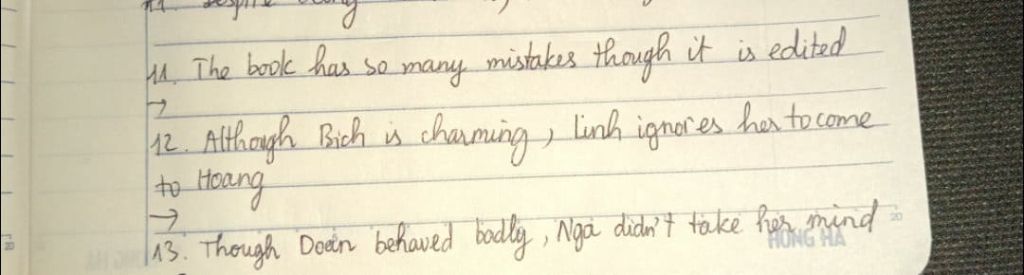 11. Despite being
11. The book has so many mistakes though it is edited
→
12. Although Bich is charming, linh ignores her to come
to Hoang
→
13. Though Doan behaved badly, Nga didn't take her mind
HONG HA